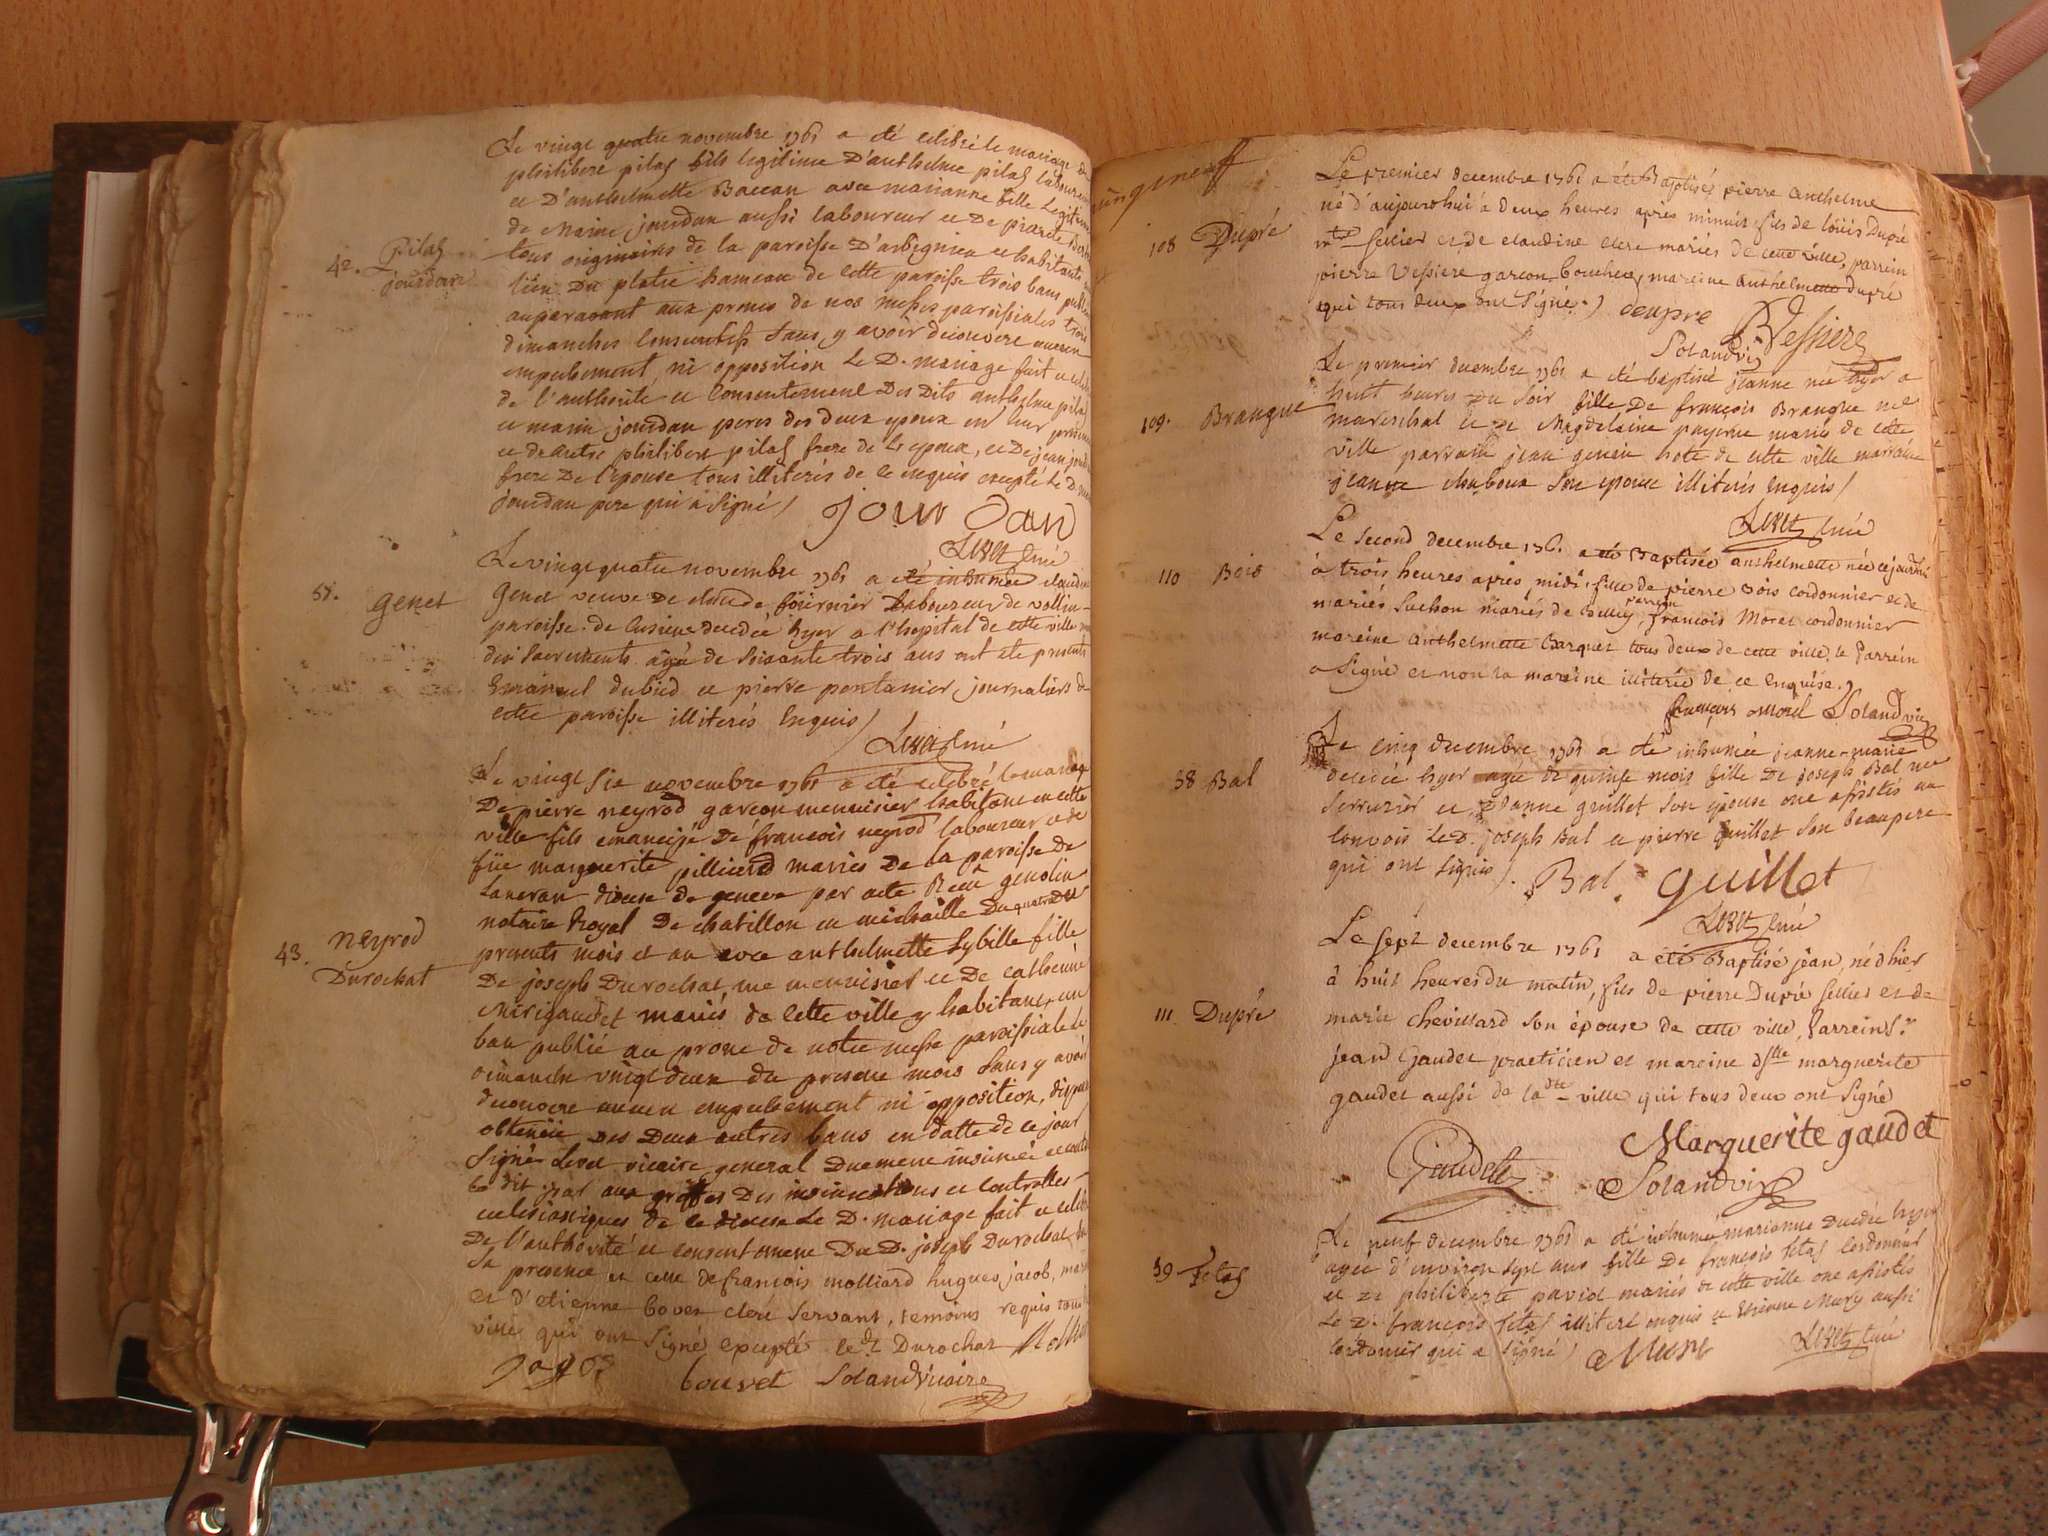 Le vingt quatre novembre 1761 a été celebré le mariage de
philibert pilas fils legitime D'anthelme pilas laboureur
et D'anthelmette Baccon avec marianne fille legitime
de Marin jourdan aussi laboureur et De pierrette
tous originaires de la paroisse D'arbignieu et habitants
42. Pilas
jourdan
lieu Du platre hameau de cette paroisse trois bans publiés
auparavant aux prones de nos messes paroissiales trois
dimanches consecutifs sans y avoir decouvert aucun
empechement ni opposition Le D. mariage fait et celebré
de l'authorité et consentement Des Dits anthelme pilas
et marin jourdan peres des deux epoux en leur presence
et de autre philibert pilas frere de l'epoux, et De jean jourdan
frere De l'epouse tous illiterés de ce enquis excepté le D.
jourdan pere qui a signé /
jour Dan
Livet curé
Le vingt quatre novembre 1761 a été inhumée claudine
58. genet
genet veuve De claude fournier laboureur de vollin
paroisse de decedée hyer a l'hopital de cette ville
des sacrements agée de soixante trois ans ont été presents
Emanuel dubied et pierre pontanier journaliers de
cette paroisse illiterés Enquis /
Livet curé
Le vingt six novembre 1761 a été celebré le mariage
De pierre neyrod garçon menuisier habitant en cette
ville fils emancipé De françois neyrod laboureur et de
füe marguerite pilliend mariés De la paroisse De
Lancran diocese de geneve par acte Reçu genolin
notaire Royal De chatillon en michaille Du quatre Du
43. neyrod
Durochat
presents mois et an avec anthelmette Sybille fille
De joseph Durochat me menuisier et De catherine
Merigaudet mariés de cette ville y habitant, un
ban publié au prone de notre messe paroissiale le
dimanche vingt deux du present mois sans y avoir
decouvert aucun empechement ni opposition, dispense
obtenüe Des Deux autres bans en datte de ce jour
signé Livet vicaire general Duement insinuée et
Le dit jour aux greffes Des insinuations et controlles
eclesiastiques de ce diocese Le D. mariage fait et celebré
De l'authorité et consentement Du D. joseph Durochat
sa presence et celle de françois molliard hugues jacob,
et d'etienne bovet clerc servant, temoins requis tous
ville qui ont signé excepté ledt Durochat
bouvet Solandvicaire
Le premier decembre 1761 a été Baptisés pierre anthelme
né d'aujourdhui à deux heures après minuit fils de loüis Dupré
108 Dupré
mtre sellier et de claudine clerc mariés de cette ville, parrein
pierre Vessiere garçon boucher, mareine anthelmette dupré
qui tous deux ont signé . / deupre Vessiere
Solandvic
Le premier decembre 1761 a été baptisé jeanne née hyer a
huit heures Du soir fille De françois Brangue me
109. Brangue
mareschal et De Magdelaine payerne mariés de cette
ville parrain jean genein hote de cette ville marraine
jeanne chuboux son epouse illiterés Enquis /
Livet curé
Le second decembre 176. a été Baptisée anthelmette née cejourdhui
110 Bois
à trois heures après midi, fille de pierre Bois cordonnier et de
mariés Suchon mariés de Belley, parrein françois Morel cordonnier
mareine anthelmette Barquet tous deux de cette ville, le parrein
a signé et non la mareine illiterée de ce Enquise. /
françois morel Solandvic
Le cinq decembre 1761 a été inhumée jeanne-marie
58 Bal
decedée hyer agée de quinse mois fille De joseph Bal me
serrurier et jeanne guillet son epouse ont assistés au
convois Le D. joseph Bal et pierre guillet son beaupere
qui ont signés / . Bal. guillet
Livet curé
Le sept decembre 1761 a été Baptisé jean, né d'hier
à huit heures du matin, fils de pierre Dupré sellier et de
111 Dupré
marie chevillard son épouse de cette ville, Parrein Sr
jean Gaudet practicien et mareine dslle marguerite
gaudet aussi de la dte ville qui tous deux ont signé
Marguerite gaudet
Gaudet Solandvic
Le neuf decembre 1761 a été inhumé marianne decedée hyer
59 fetas
agée d'environ sept ans fille De françois fetas Cordonnier
et De philiberte paviot mariés de cette ville ont assistés
Le D. françois fetas illiteré enquis et Etienne Mury aussi
cordonnier qui a signé /
Livet curé